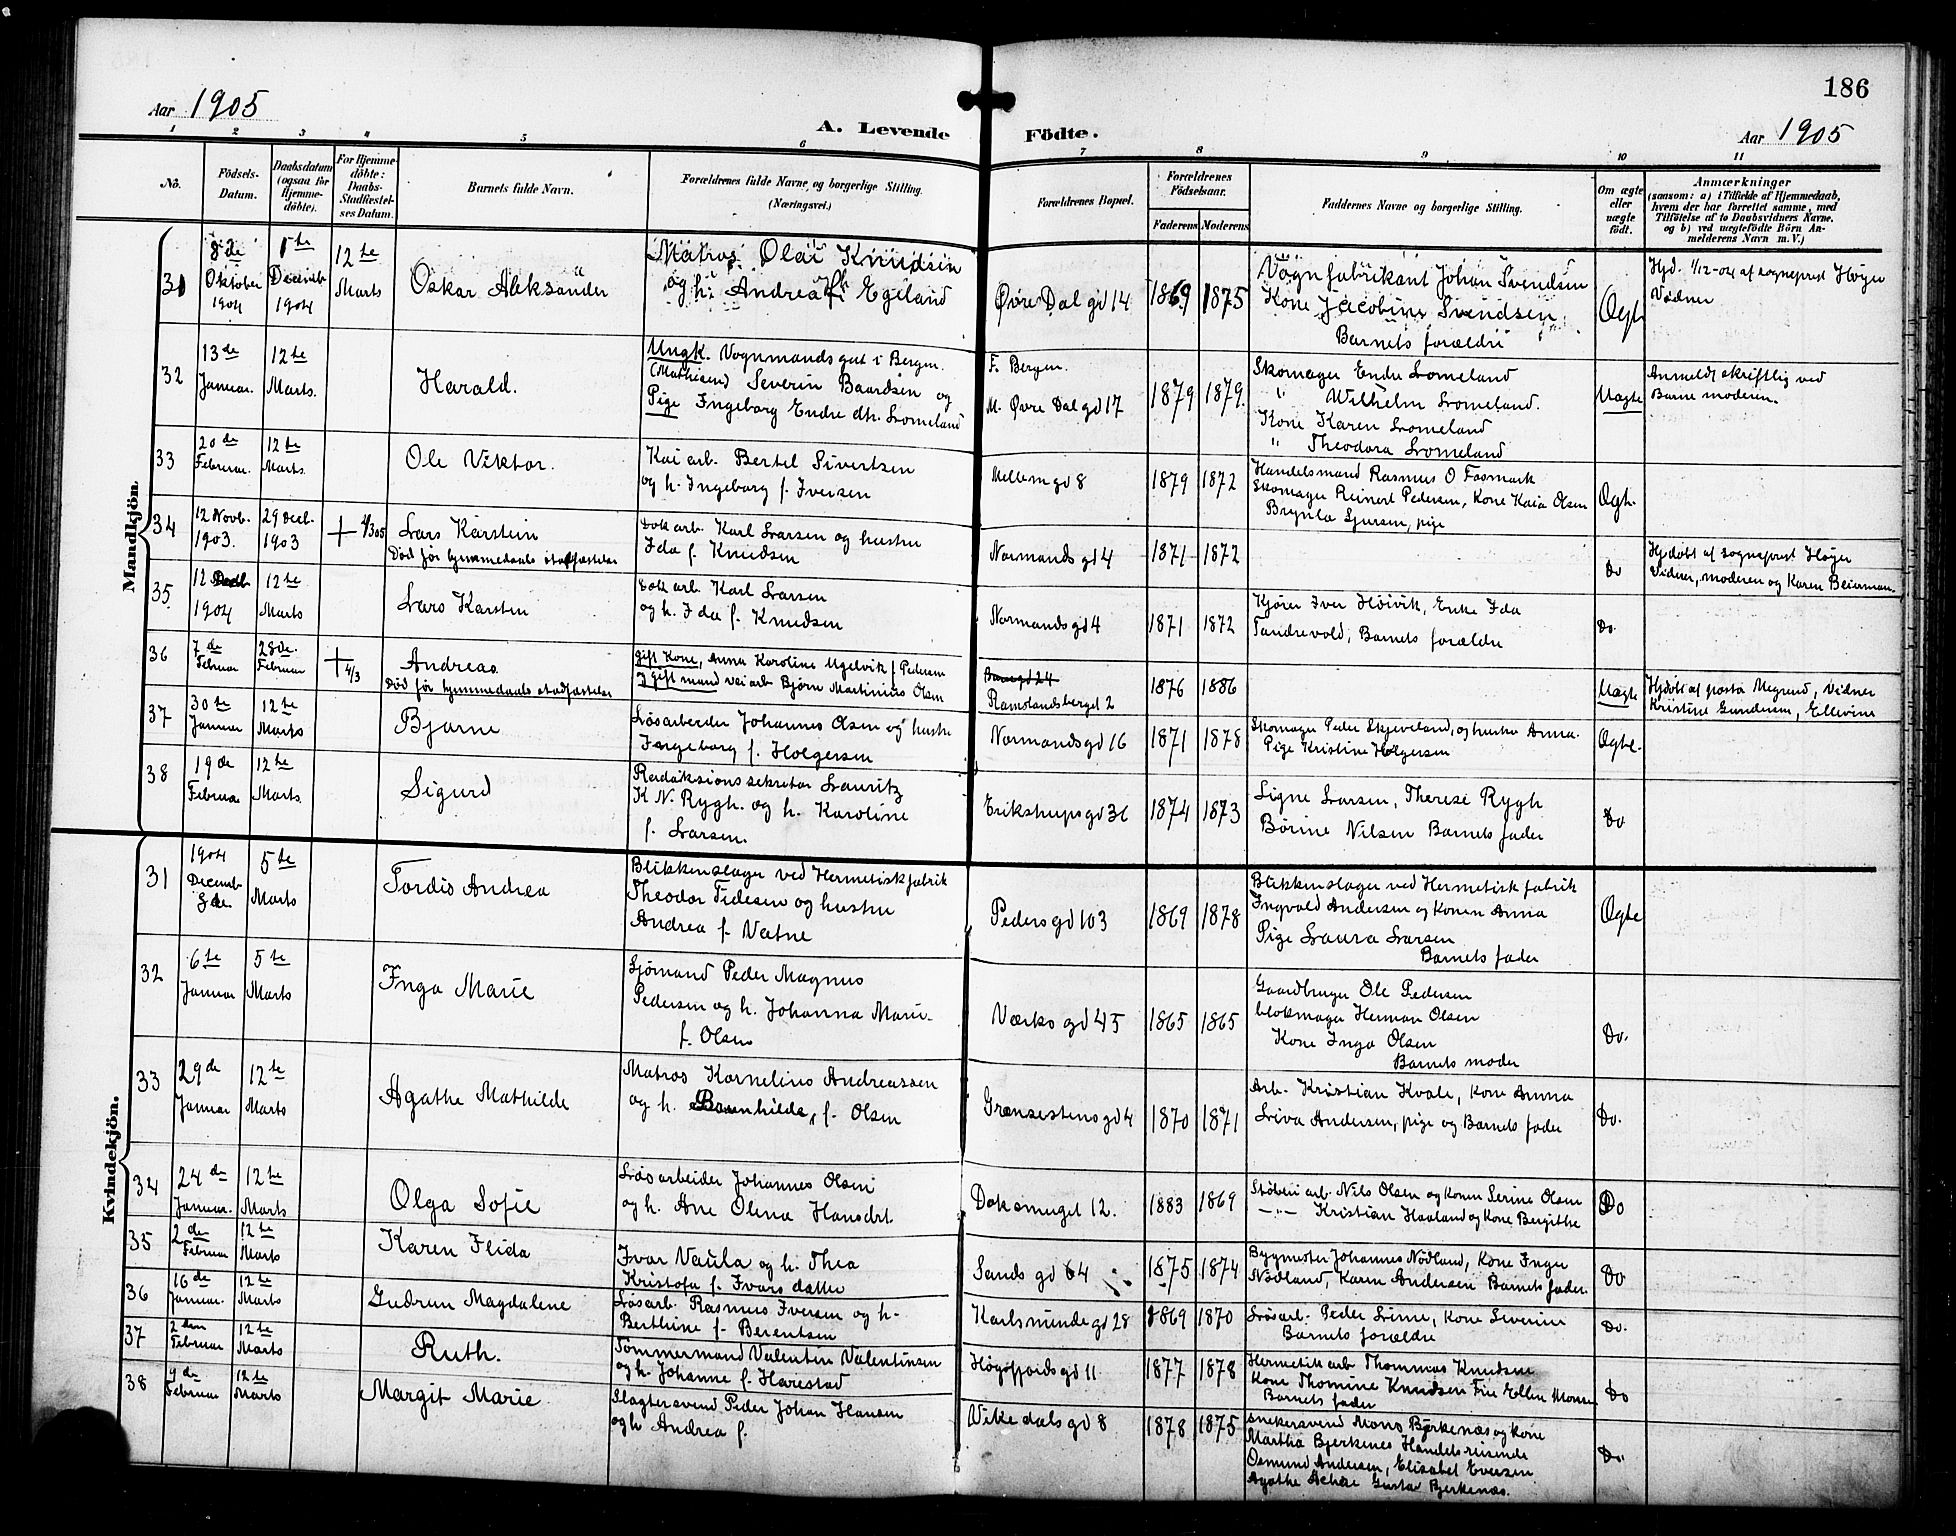 186
Aar 1905
A. Levende Födte.
Aar 1905
1 2 3 4 5 6 7 8 9 10 11
No.
Födsels-
Datum.
Daabsdatum
(ogsaa for
Hjemme-
döbte).
For Hjemme-
döbte:
Daabs-
Stadfæstel-
ses Datum.
Barnets fulde Navn.
Forældrenes fulde Navne og borgerlige Stilling.
(Næringsvei.)
Forældrenes Bopæl.
Forældrenes
Födselsaar.
Faderens
Moderens
Faddernes Navne og borgerlige Stilling.
Om ægte
eller
uægte
födt.
Anmærkninger
(saasom: a) i Tilfælde af Hjemmedaab,
hvem der har forrettet samme, med
Tilföielse af to Daabsvidners Navne.
og b) ved uægtefödte Börn An-
melderens Navn m. V.)
Mandkjön.
31
8de
Oktober
1904
1te
Decemb
1904
12te
Marts
Oskar Aleksander
Matros Olai Knudsen
og h. Andrea f. Egeland
Øvre Dal gd 14
1869
1875
Vognfabrikant Johan Svendsen
Kone Jacobine Svendsen
Barnets forældre
Ægte
Hjd. 1/12-04 af sogneprest Høyer
Vidner
32
13de
Januar.
12te
Marts.
Harald.
Ungk. Vognmandsgut i Bergen.
(Mathisen) Severin Baardsen og
Pige Ingeborg Endre dtr. Lromeland
F. Bergen.
M. Øvre Dal gd 17
1879
1879.
Skomager Endre Lromeland
" Wilhelm Lromeland.
Kone Karen Lromeland
" Theodora Lromeland
Uægte
Anmeldt skriftlig ved
Barnemoderen.
33
20de
Februar.
12te
Marts.
Ole Viktor.
Kaiarb. Bertel Sivertsen
og h. Ingeborg f. Iversen
Mellemgd 8
1879
1872
Handelsmand Rasmus O Fosmark
Skomager Reinert Pedersen, Kone Kaia Olsen
Sjursen, pige
Ægte.
34
12 Novb.
1903.
29 Decb.
1903
+ 4/3 05
Lars Karstein
Død før hjemmedaabs stadfæstelse
Dokarb. Karl Larsen og hustru
Ida f. Knudsen
Normandsgd 4
1871
1872
Do
Hjdøbt af sogneprest Høyer
Vidner, moderen og Karen Beierman.
35
12 Decb
1904
12te
Marts
Lars Karsten
Dokarb. Karl Larsen
og h. Ida f. Knudsen
Normandsgd 4
1871
1872
Kjører Iver Høivik, Enke Ida
Tandrevold, Barnets forældre
Do.
36
7de
Februar
28de.
Februar
+ 4/3
Andreas
Død før hjemmedaabs stadfæstelse
gift Kone, Anna Karoline Ugelvik f. Pedersen
og gift mand veiarb Bjørn Martinius Olsen
Ramslandsberget 2
1876
1886
Uægte
Hjdøbt af pastor Megrund, Vidner
Kristine Gundersen, Ellevine
37
30te
Januar
12te
Marts
Bjarne
Løsarbeider Johannes Olsen og hustru
Ingeborg f. Holgersen
Normandsgd 16
1871
1878
Skomager Peder Skjeveland, og hustru Anna.
Pige Kristine Holgersen
Ægte.
38
19de
Februar
12te
Marts.
Sigurd
Redaktionssekretær Lauritz
K N. Rygh. og h. Karoline
f. Larsen.
Erikstrupsgd 36
1874
1873
Signe Larsen, Therese Rygh
Børine Nilsen Barnets fader
Do
Kvindekjön.
31
1904
Decemb
8de
5te
Marts
Tordis Andrea
Blikkenslager ved Hermetiskfabrik
Theodor Tidesen og hustru
Andrea f. Vatne
Pedersgd 103
1869
1878
Blikkenslager ved Hermetisk fabrik
Ingvald Andersen og Konen Anna
Pige Laura Larsen
Barnets fader
Ægte
32
6te
Januar
5te
Marts
Inga Marie
Sjømand Peder Magnus
Pedersen og h. Johanna Marie
f. Olsen
Værksgd 45
1865
1865
Gaardbruger Ole Pedersen
blokmager Herman Olsen
Kone Inga Olsen
Barnets moder
Do.
33
29de
Januar
12te
Marts
Agathe Mathilde
Matros Kornelius Andreassen
og h. f. Olsen
Grænsestensgd 4
1870
1871
Arb. Kristian Kvale, Kone Anna
Liva Andersen, pige og Barnets fader
Do.
34
24de
Januar.
12te
Marts.
Olga Sofie
Løsarbeider Johannes Olsen
og h. Ane Olena Hansdtr.
Doksmuget 12.
1883
1869
Støberiarb. Nils Olsen og Konen Serine Olsen
— " — Kristian Haaland og Kone Bergithe
Do
35
2den
Februar
12te
Marts
Karen Elida
Ivar Vaula og h. Thea
Kristofa f. Ivarsdatter
Sandsgd 64
1875
1874
Bygmester Johannes Nødland, Kone Inger
Nødland, Karen Andersen Barnets fader.
Do
36
16de
Januar.
12te
Marts
Gudrun Magdalene
Løsarb. Rasmus Iversen og h.
Berthine f. Berentsen
Karlsmindegd 28
1869
1870
Løsarb. Peder Lime, Kone Severine
Barnets forældre
Do.
37
2den
Februar
12te
Marts
Ruth.
Tømmermand Valentin Valentinsen
og h. Johanne f. Harestad
Høgsfjordsgd 11
1877
1878
Hermetikarb Thommas Knudsen
Kone Thomine Knudsen Frue Ellen Monsen
Barnets fader
Do
38
9de
Februar
12te
Marts
Margit Marie
Slagtersvend Peder Johan Hansen
og h Andrea f.
Vikedalsgd 8
1878
1875
Snekersvend Mons Bjerkenæs og kone
Martha Bjerkenes Handelsreisende
Osmund Andersen, Elisabet Evensen
Agathe Gustav Bjerkenæs.
Do